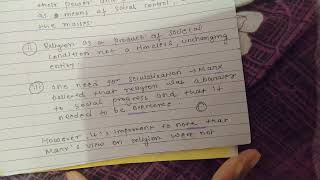 their power and
as a means of social control,
the masses.
(II) Religion as a product of social
condition not a timeless, unchanging
entity.
(III) The need for socialization → Marx
believed that religion was a
to social progress and that it
needed to be overcome.
However, it is important to note that
Marx's view on religion were not